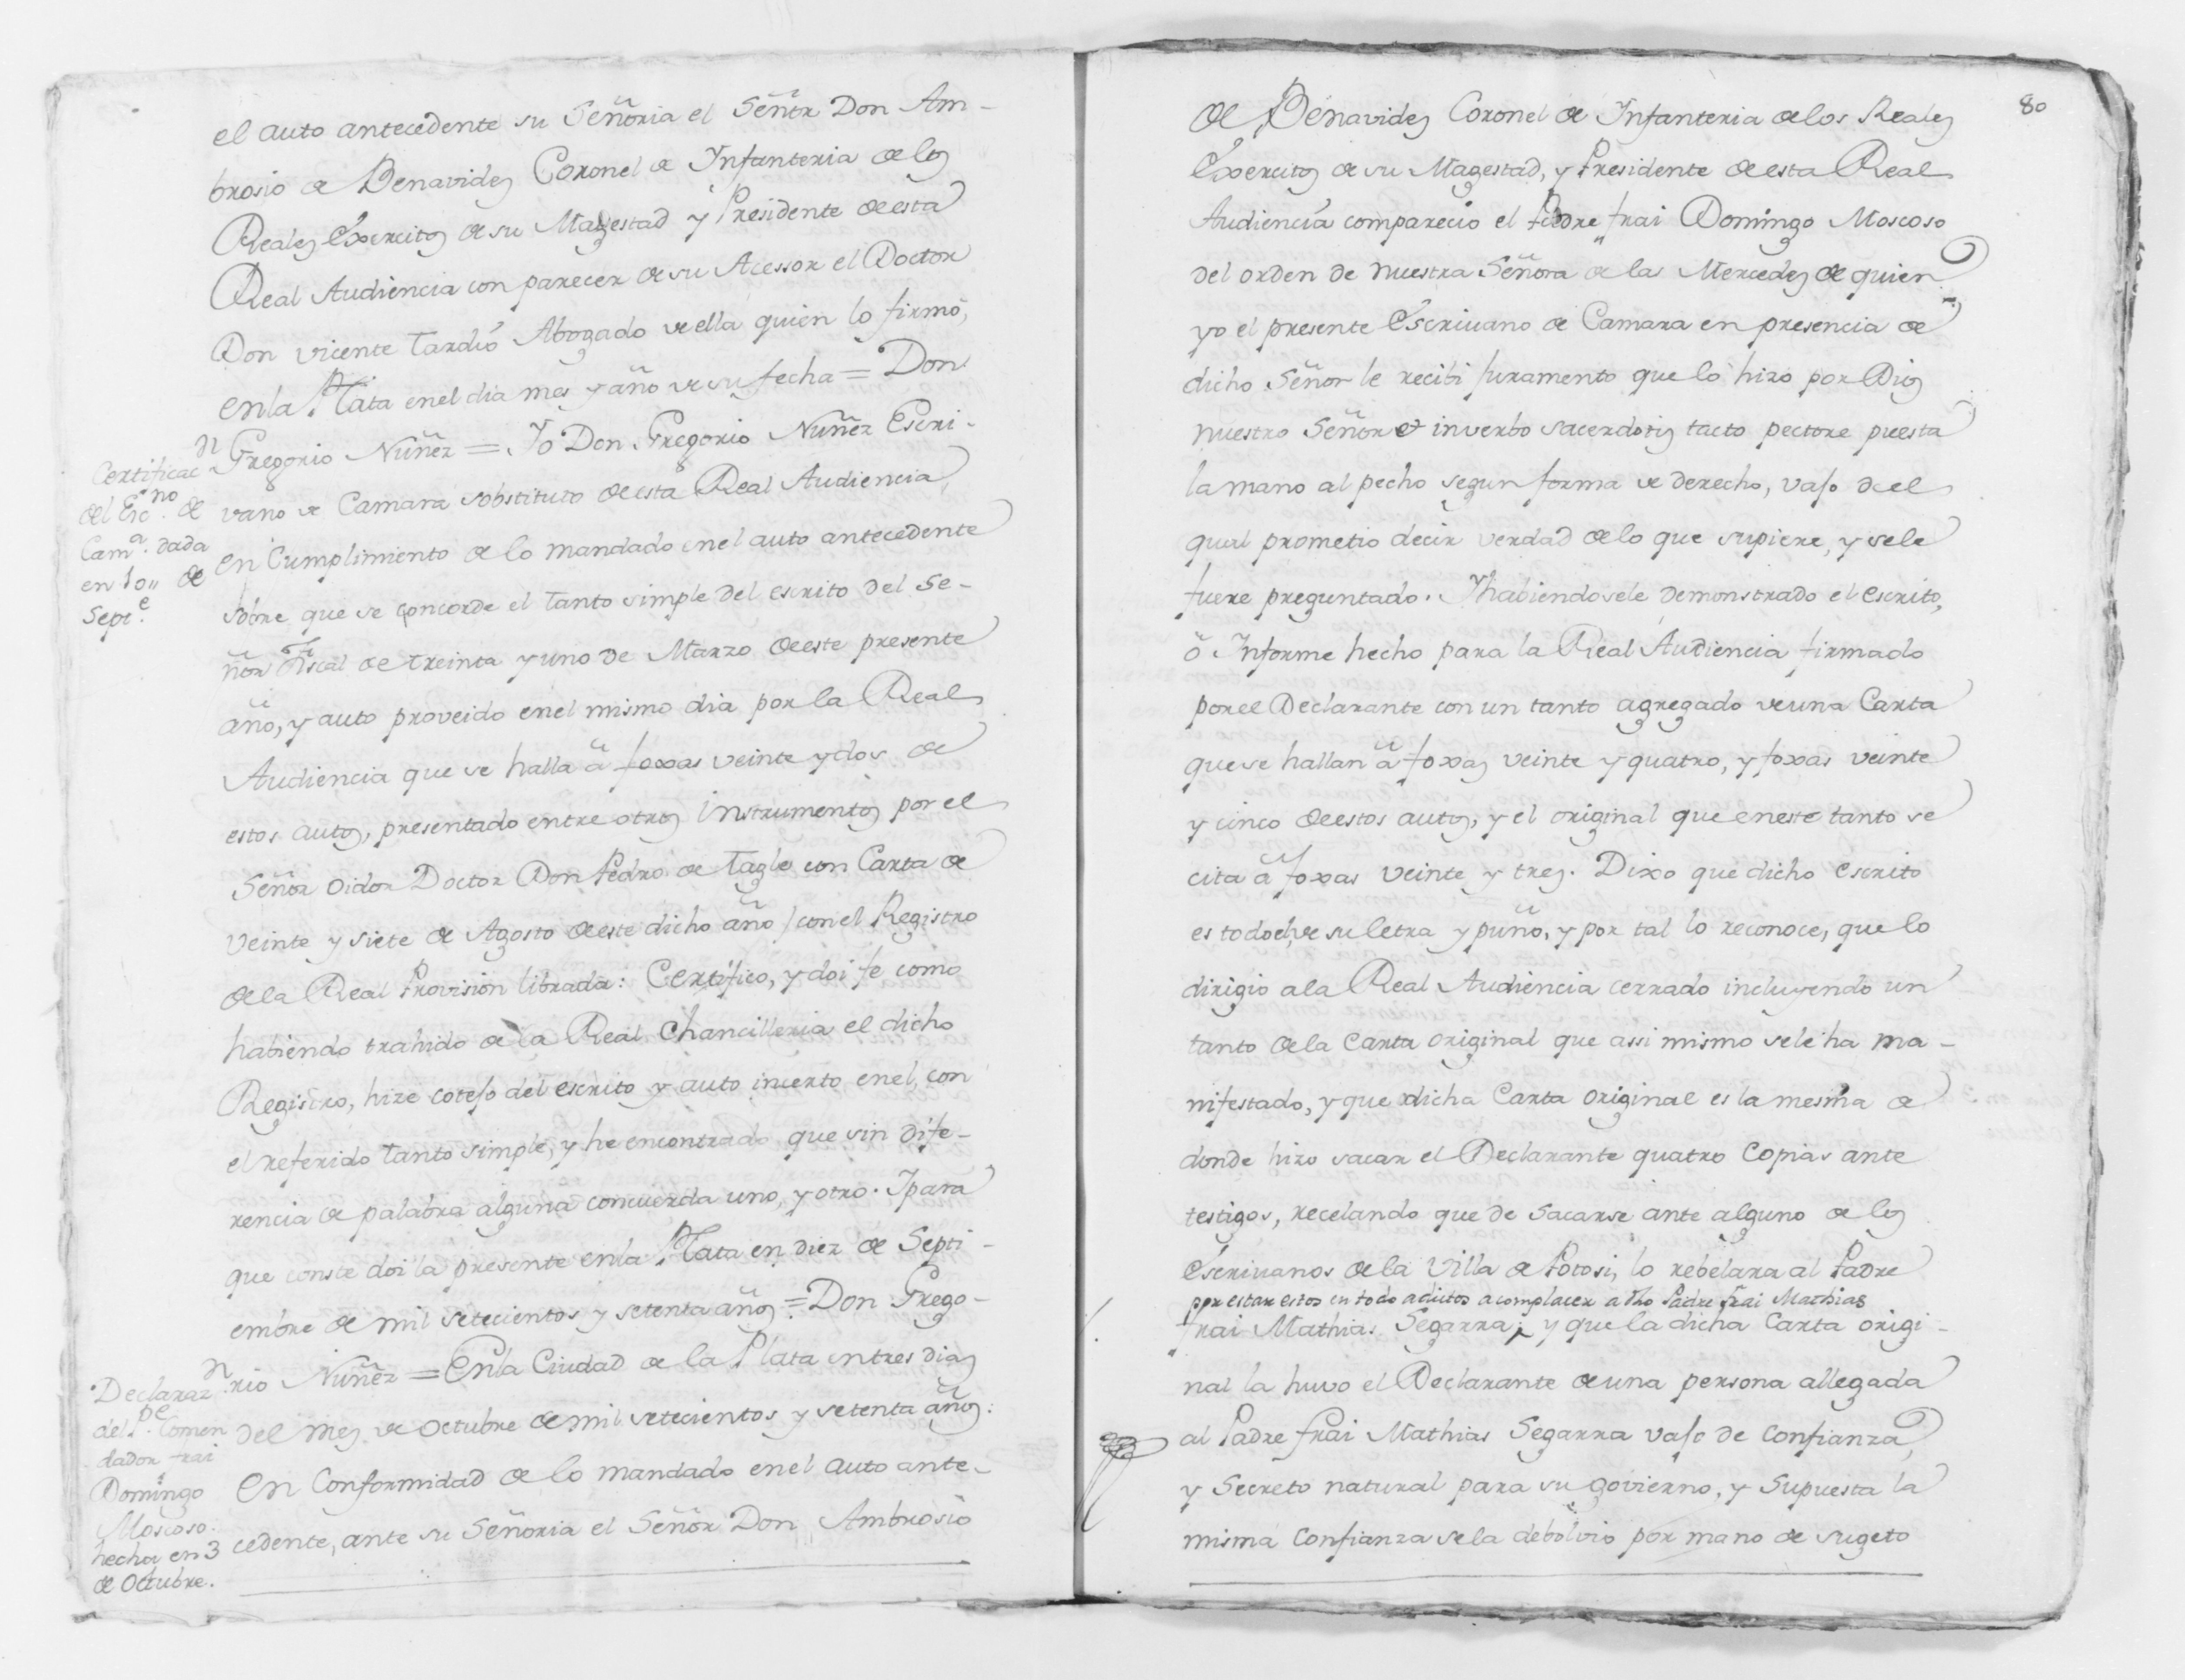 el auto antecedente su Señoria el Señor Don Am-
brosio de Benavides Coronel de Infanteria de los
Reales Exercitos de su Magestad y Presidente de esta
Real Audiencia con parecer de su Acessor el Doctor
Don Vicente Tardió Abogado de ella quien lo firmó,
en la Plata en el dia mes y año de su fecha = Don
Gregorio Nuñez = Yo Don Gregorio Nuñez Escri-
vano de Camara sobstituto de esta Real Audiencia,
en Cumplimiento de lo mandado en el auto antecedente
sobre que se concorde el tanto simple del escrito del Se-
ñor Fiscal de treinta y uno de Marzo de este presente
año, y auto proveido en el mismo dia por la Real
Audiencia que se halla â foxas veinte y dos de
estos autos, presentado entre otros instrumentos por el
Señor Oidor Doctor Don Pedro de Tagle con Carta de
veinte y siete de Agosto de este dicho año / con el Registro
de la Real Provision librada: Certifico, y doi fe como
habiendo trahido de la Real Chancilleria el dicho
Registro, hize cotejo del escrito y auto incerto en el, con
el referido tanto simple, y he encontrado que sin dife-
rencia de palabra alguna concuerda uno, y otro. Y para
que conste doi la presente en la Plata en diez de Septi-
embre de mil setecientos y setenta años = Don Grego-
rio Nuñez = En la Ciudad de la Plata en tres dias
del mes de Octubre de mil setecientos y setenta años:
En Conformidad de lo mandado en el auto ante-
cedente, ante su Señoria el Señor Don Ambrosio
Certificac.n
del Esc.no de
Cam.a dada
en 10,, de
Sept.e
Declaraz.n
del P.e Comen
dador frai
Domingo
Moscoso.
hecha en 3
de Octubre.
80
de Benavides Coronel de Infanteria de los Reales
Exercitos de su Magestad, y Presidente de esta Real
Audiencia comparecio el Padre frai Domingo Moscoso
del orden de nuestra Señora de las Mercedes de quien
yo el presente Escrivano de Camara en presencia de
dicho Señor le recibi juramento que lo hizo por Dios
nuestro Señor et in verbo sacerdotis tacto pectore puesta
la mano al pecho segun forma de derecho, vajo de el
qual prometio decir verdad de lo que supiere, y se le
fuere preguntado. Y habiendosele demonstrado el escrito,
ô Informe hecho para la Real Audiencia firmado
por el Declarante con un tanto agregado de una Carta
que se hallan â foxas veinte y quatro, y foxas veinte
y cinco de estos autos, y el original que en este tanto se
cita â foxas veinte y tres. Dixo que dicho escrito
es todo de su letra y puño, y por tal lo reconoce, que lo
dirigio a la Real Audiencia cerrado incluyendo un
tanto de la Carta original que assi mismo se le ha ma-
nifestado, y que dicha Carta original es la mesma de
donde hizo sacar el Declarante quatro Copias ante
testigos, recelando que de sacarse ante alguno de los
Escrivanos de la Villa de Potosi, lo rebelara al Padre
por estar estos en todo adictos a complacer a dho Padre frai Mathias
frai Mathias Segarra; y que la dicha Carta origi-
nal la huvo el Declarante de una persona allegada
al Padre frai Mathias Segarra vajo de confianza,
y Secreto natural para su govierno, y Supuesta la
misma Confianza se la debolvio por mano de sugeto